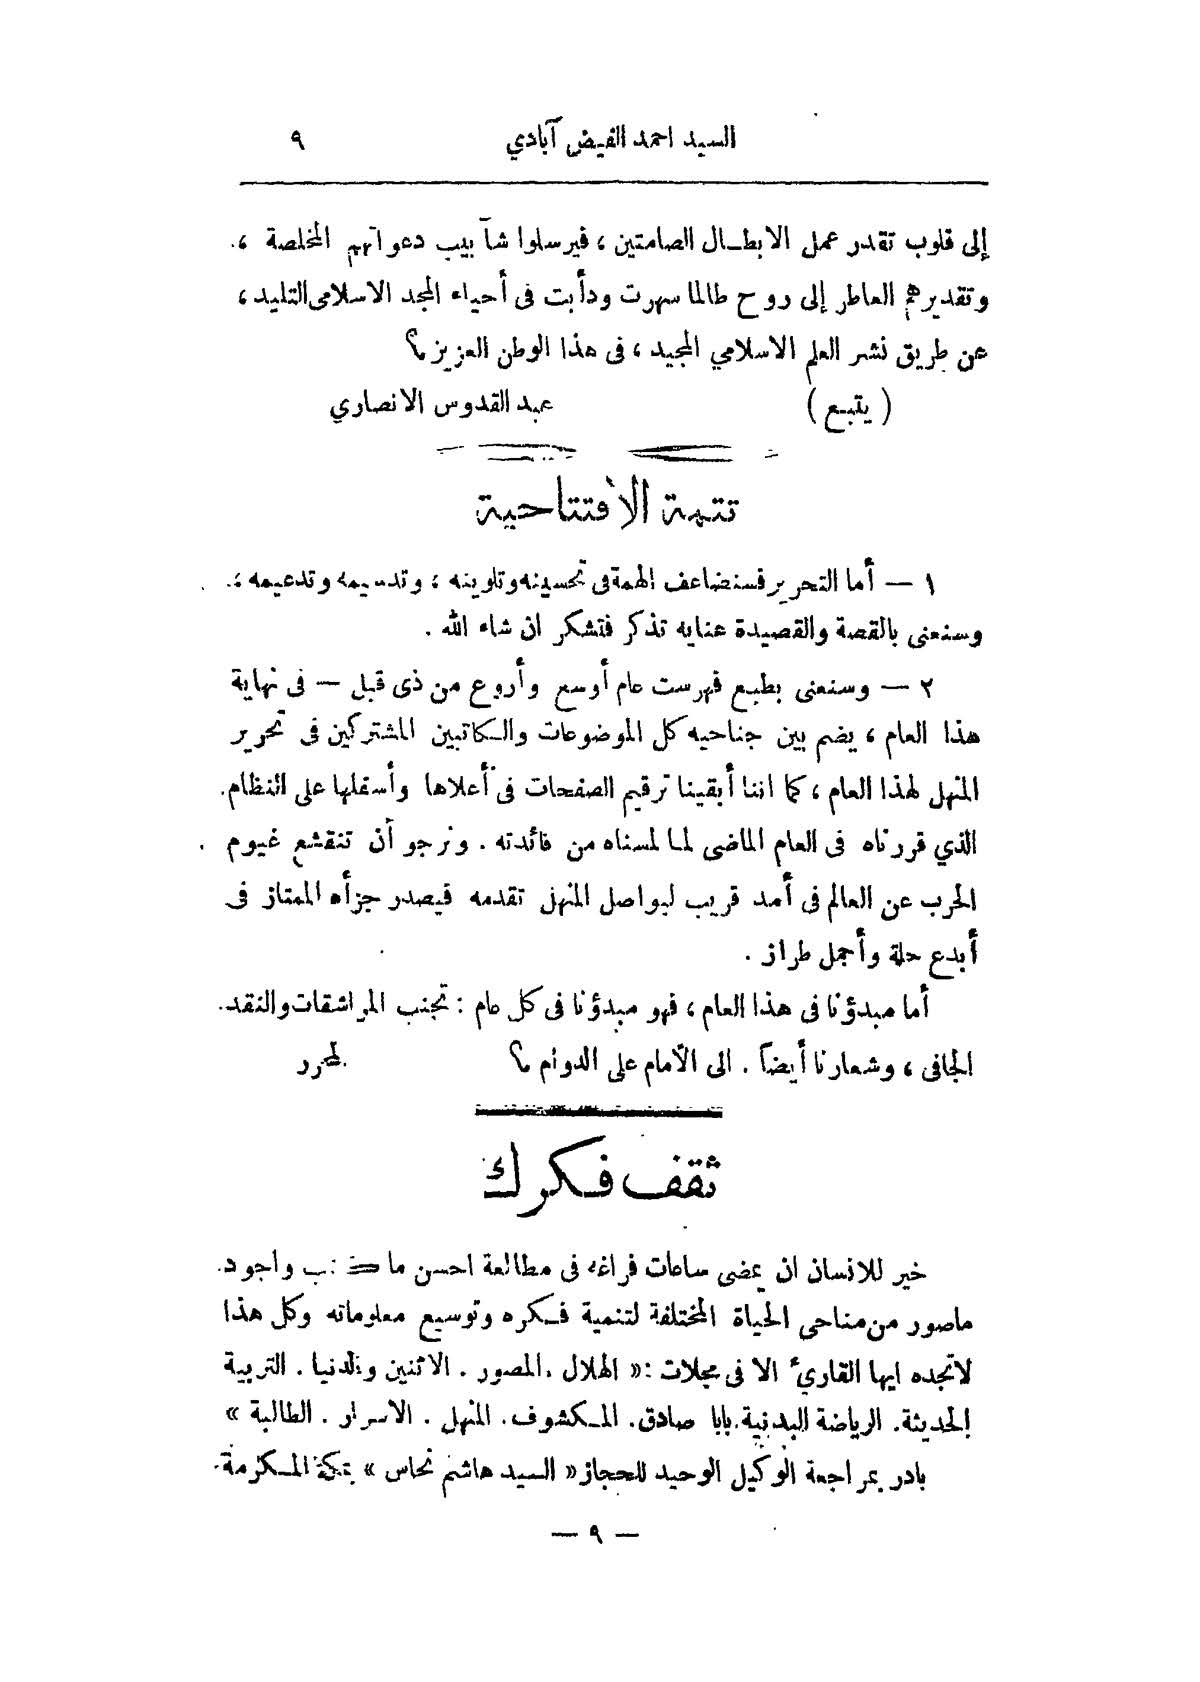 السيد احمد الفيض آبادي ٩
إلى قلوب تقدر عمل الابطال الصامتين ، فيرسلوا شآبيب دعواتهم المخلصة ،
وتقديرهم العاطر إلى روح طالما سهرت ودأبت فى أحياء المجد الاسلامى التليد ،
عن طريق نشر العلم الاسلامي المجيد ، فى هذا الوطن العزيز ؟
( يتبع ) عبد القدوس الانصاري
تتمة الافتتاحية
١ — أما التحرير فسنضاعف الهمة فى تحسينه وتلوينه ، وتدعيمه ،
وسنعنى بالقصة والقصيدة عناية تذكر فتشكر ان شاء الله .
٢ — وسنعنى بطبع فهرست عام أوسع وأروع من ذى قبل — فى نهاية
هذا العام ، يضم بين جناحيه كل الموضوعات والكاتبين المشتركين فى تحرير
المنهل لهذا العام ، كما اننا أبقينا ترقيم الصفحات فى أعلاها وأسفلها على النظام
الذي قررناه فى العام الماضى لما لمسناه من فائدته . ونرجو أن تنقشع غيوم
الحرب عن العالم فى أمد قريب ليواصل المنهل تقدمه فيصدر جزأه الممتاز فى
أبدع حلة وأجمل طراز .
أما مبدؤنا فى هذا العام ، فهو مبدؤنا فى كل عام : تجنب المراشقات والنقد
الجافى ، وشعارنا أيضاً . الى الأمام على الدوام ؟ المحرر
ثقف فكرك
خير للانسان ان يمضى ساعات فراغه فى مطالعة احسن ما كتب واجود
ماصور من مناحى الحياة المختلفة لتنمية فكره وتوسيع معلوماته وكل هذا
لاتجده ايها القارئ الا فى مجلات : « الهلال . المصور . الاثنين والدنيا . التربية
الحديثة . الرياضة البدنية . بابا صادق . المكشوف . المنهل . الاسرار . الطالبة »
بادر بمراجعة الوكيل الوحيد للحجاز « السيد هاشم نحاس » بمكة المكرمة
— ٩ —